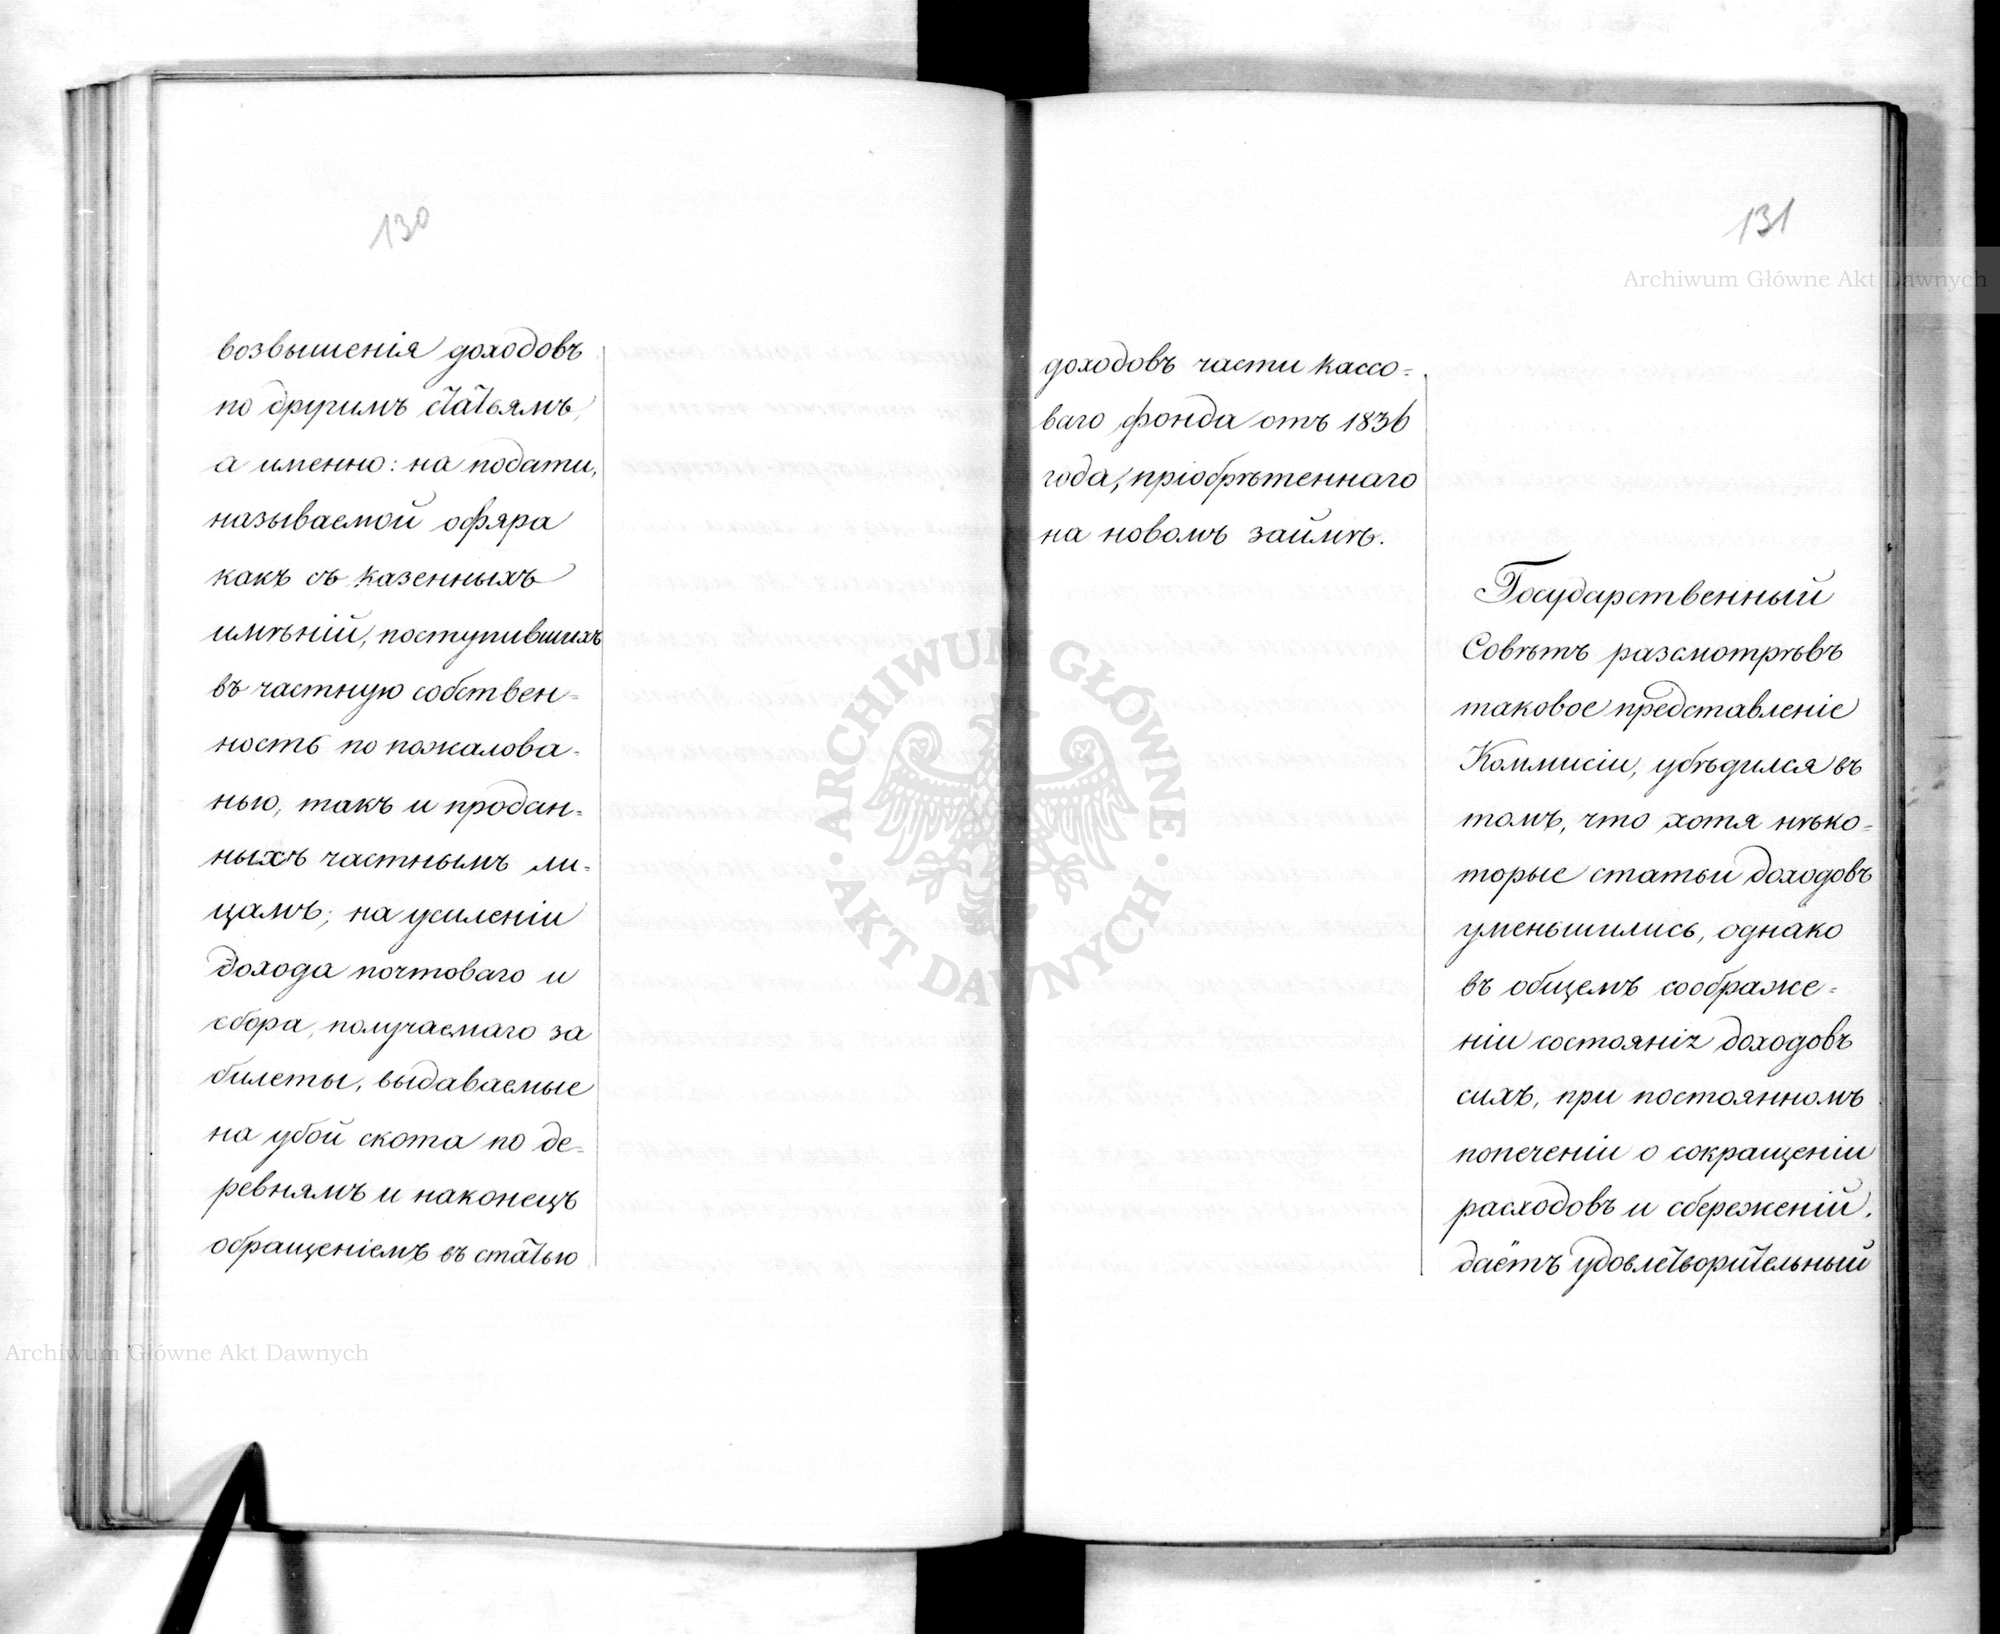 130
возвышенія доходовъ
по другимъ статьямъ,
а именно: на подати,
называемой офяра
какъ съ казенныхъ
имѣній, поступившихъ
въ частную собствен=
ность по пожалова-
нью, такъ и продан=
ныхъ частнымъ ли-
цамъ; на усиленіи
дохода почтоваго и
сбора, получаемаго за
билеты, выдаваемые
на убой скота по де-
ревнямъ и наконецъ
обращеніемъ въ статью
131
доходовъ части кассо=
ваго фонда отъ 1836
года, пріобрѣтеннаго
на новомъ займѣ.
Государственный
Совѣтъ разсмотрѣвъ
таковое представленіе
Коммисіи, убѣдился въ
томъ, что хотя нѣко=
торые статьи доходовъ
уменьшились, однако
въ общемъ соображе=
ніи состоянія доходовъ
сихъ, при постоянномъ
попеченіи о сокращеніи
расходовъ и сбереженій,
даётъ удовлетворительный
Archiwum Główne Akt Dawnych
Archiwum Główne Akt Dawnych
ARCHIWUM GŁÓWNE
AKT DAWNYCH